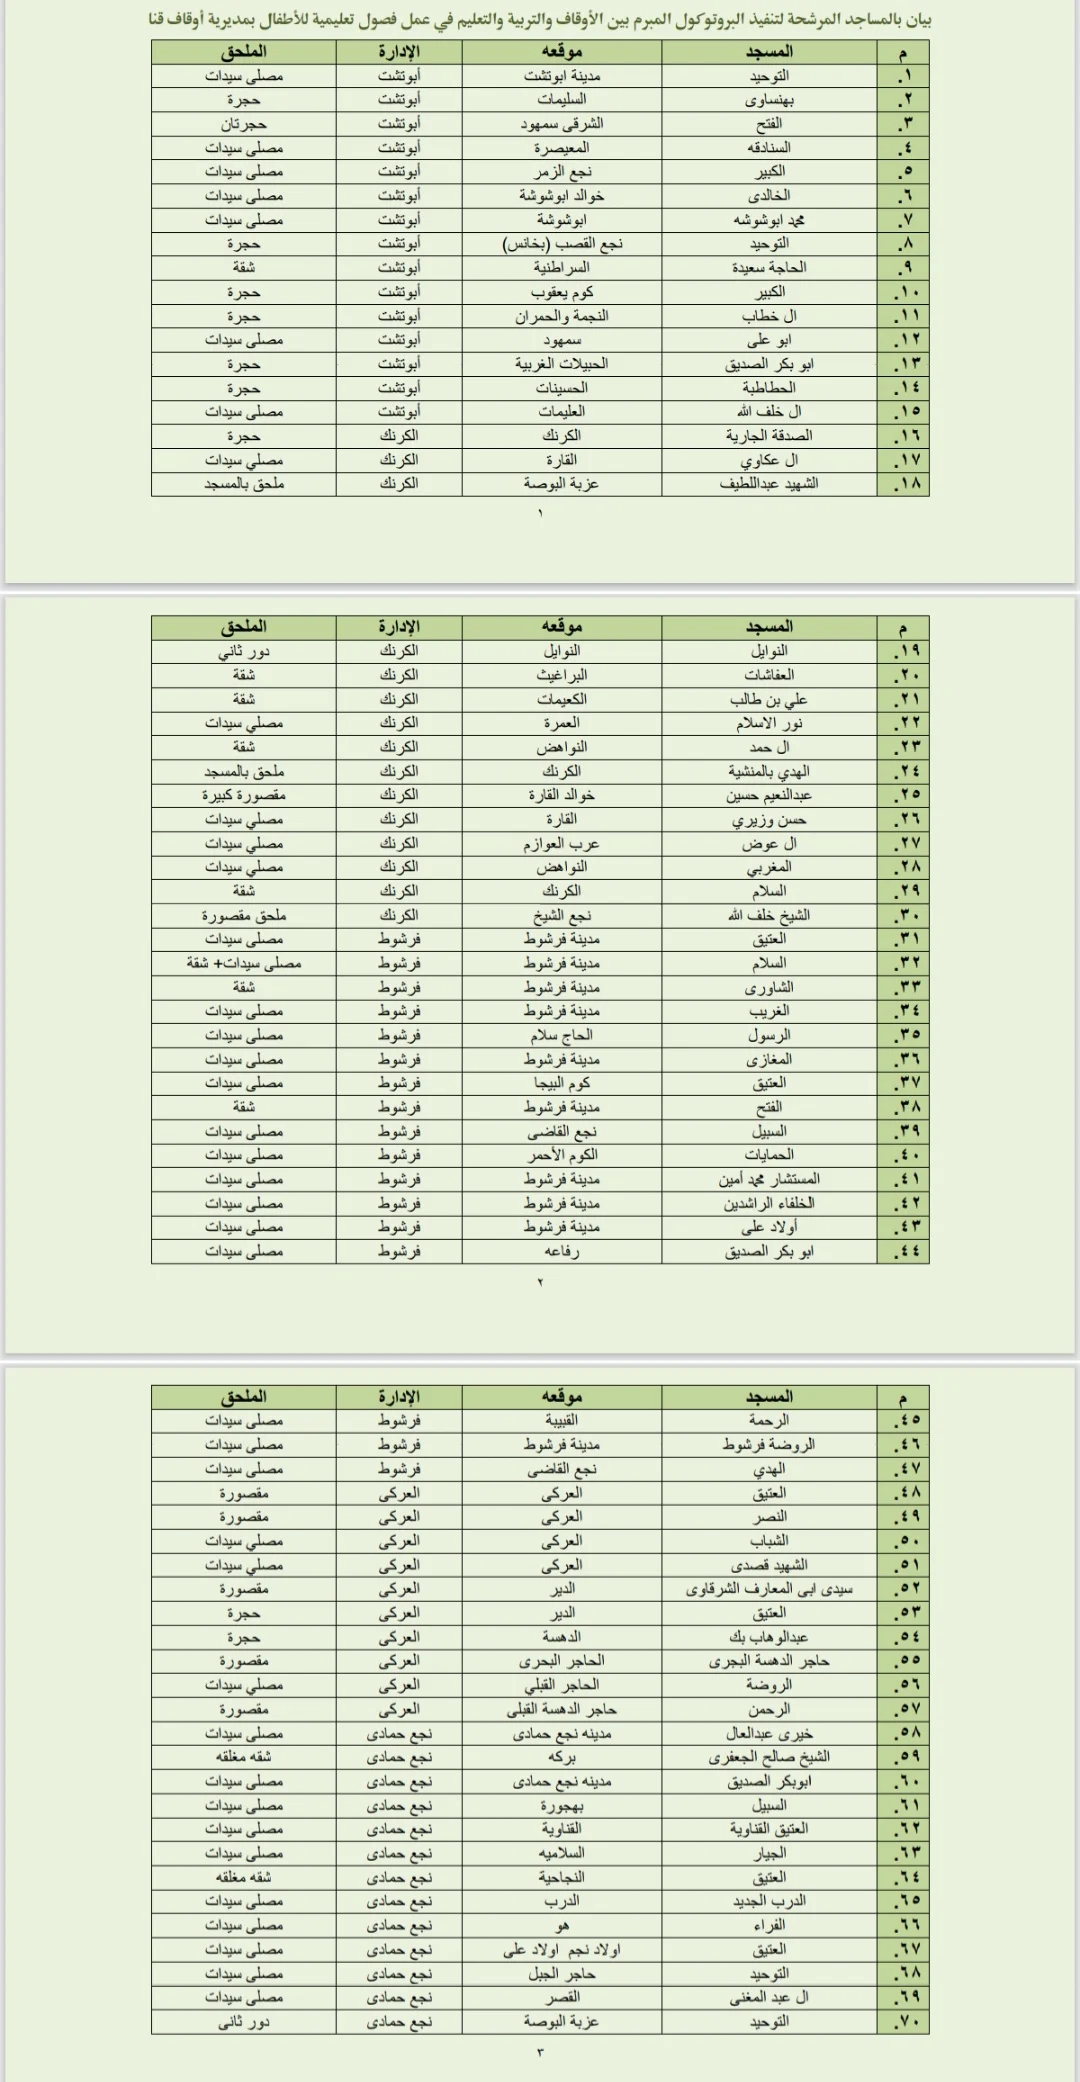 بيان بالمساجد المرشحة لتنفيذ البروتوكول المبرم بين الأوقاف والتربية والتعليم في عمل فصول تعليمية للأطفال بمديرية أوقاف قنا
م المسجد موقعه الإدارة الملحق
١. التوحيد مدينة ابوتشت أبوتشت مصلى سيدات
٢. بهنساوى السليمات أبوتشت حجرة
٣. الفتح الشرقى سمهود أبوتشت حجرتان
٤. السنادقه المعيصرة أبوتشت مصلى سيدات
٥. الكبير نجع الزمر أبوتشت مصلى سيدات
٦. الخالدى خوالد ابوشوشة أبوتشت مصلى سيدات
٧. محمد ابوشوشه ابوشوشة أبوتشت مصلى سيدات
٨. التوحيد نجع القصب (بخانس) أبوتشت حجرة
٩. الحاجة سعيدة السراطنية أبوتشت شقة
١٠. الكبير كوم يعقوب أبوتشت حجرة
١١. ال خطاب النجمة والحمران أبوتشت حجرة
١٢. ابو على سمهود أبوتشت مصلى سيدات
١٣. ابو بكر الصديق الحبيلات الغربية أبوتشت حجرة
١٤. الحطاطبة الحسينات أبوتشت حجرة
١٥. ال خلف الله العليمات أبوتشت مصلى سيدات
١٦. الصدقة الجارية الكرنك الكرنك حجرة
١٧. ال عكاوي القارة الكرنك مصلي سيدات
١٨. الشهيد عبداللطيف عزبة البوصة الكرنك ملحق بالمسجد
١
م المسجد موقعه الإدارة الملحق
١٩. النوايل النوايل الكرنك دور ثاني
٢٠. العفاشات البراغيث الكرنك شقة
٢١. علي بن طالب الكعيمات الكرنك شقة
٢٢. نور الاسلام العمرة الكرنك مصلي سيدات
٢٣. ال حمد النواهض الكرنك شقة
٢٤. الهدي بالمنشية الكرنك الكرنك ملحق بالمسجد
٢٥. عبدالنعيم حسين خوالد القارة الكرنك مقصورة كبيرة
٢٦. حسن وزيري القارة الكرنك مصلي سيدات
٢٧. ال عوض عرب العوازم الكرنك مصلي سيدات
٢٨. المغربي النواهض الكرنك مصلي سيدات
٢٩. السلام الكرنك الكرنك شقة
٣٠. الشيخ خلف الله نجع الشيخ الكرنك ملحق مقصورة
٣١. العتيق مدينة فرشوط فرشوط مصلى سيدات
٣٢. السلام مدينة فرشوط فرشوط مصلى سيدات+ شقة
٣٣. الشاورى مدينة فرشوط فرشوط شقة
٣٤. الغريب مدينة فرشوط فرشوط مصلى سيدات
٣٥. الرسول الحاج سلام فرشوط مصلى سيدات
٣٦. المغازى مدينة فرشوط فرشوط مصلى سيدات
٣٧. العتيق كوم البيجا فرشوط مصلى سيدات
٣٨. الفتح مدينة فرشوط فرشوط شقة
٣٩. السبيل نجع القاضى فرشوط مصلى سيدات
٤٠. الحمايات الكوم الأحمر فرشوط مصلى سيدات
٤١. المستشار محمد أمين مدينة فرشوط فرشوط مصلى سيدات
٤٢. الخلفاء الراشدين مدينة فرشوط فرشوط مصلى سيدات
٤٣. أولاد على مدينة فرشوط فرشوط مصلى سيدات
٤٤. ابو بكر الصديق رفاعه فرشوط مصلى سيدات
٢
م المسجد موقعه الإدارة الملحق
٤٥. الرحمة القبيبة فرشوط مصلى سيدات
٤٦. الروضة فرشوط مدينة فرشوط فرشوط مصلى سيدات
٤٧. الهدي نجع القاضى فرشوط مصلى سيدات
٤٨. العتيق العركى العركى مقصورة
٤٩. النصر العركى العركى مقصورة
٥٠. الشباب العركى العركى مصلي سيدات
٥١. الشهيد قصدى العركى العركى مصلي سيدات
٥٢. سيدى ابى المعارف الشرقاوى الدير العركى مقصورة
٥٣. العتيق الدير العركى حجرة
٥٤. عبدالوهاب بك الدهسة العركى حجرة
٥٥. حاجر الدهسة البجرى الحاجر البحرى العركى مقصورة
٥٦. الروضة الحاجر القبلي العركى مصلي سيدات
٥٧. الرحمن حاجر الدهسة القبلى العركى مقصورة
٥٨. خيرى عبدالعال مدينه نجع حمادى نجع حمادى مصلى سيدات
٥٩. الشيخ صالح الجعفرى بركه نجع حمادى شقه مغلقه
٦٠. ابوبكر الصديق مدينه نجع حمادى نجع حمادى مصلى سيدات
٦١. السبيل بهجورة نجع حمادى مصلى سيدات
٦٢. العتيق القناوية القناوية نجع حمادى مصلى سيدات
٦٣. الجيار السلاميه نجع حمادى مصلى سيدات
٦٤. العتيق النجاحية نجع حمادى شقه مغلقه
٦٥. الدرب الجديد الدرب نجع حمادى مصلى سيدات
٦٦. الفراء هو نجع حمادى مصلى سيدات
٦٧. العتيق اولاد نجم اولاد على نجع حمادى مصلى سيدات
٦٨. التوحيد حاجر الجبل نجع حمادى مصلى سيدات
٦٩. ال عبد المغنى القصر نجع حمادى مصلى سيدات
٧٠. التوحيد عزبة البوصة نجع حمادى دور ثانى
٣